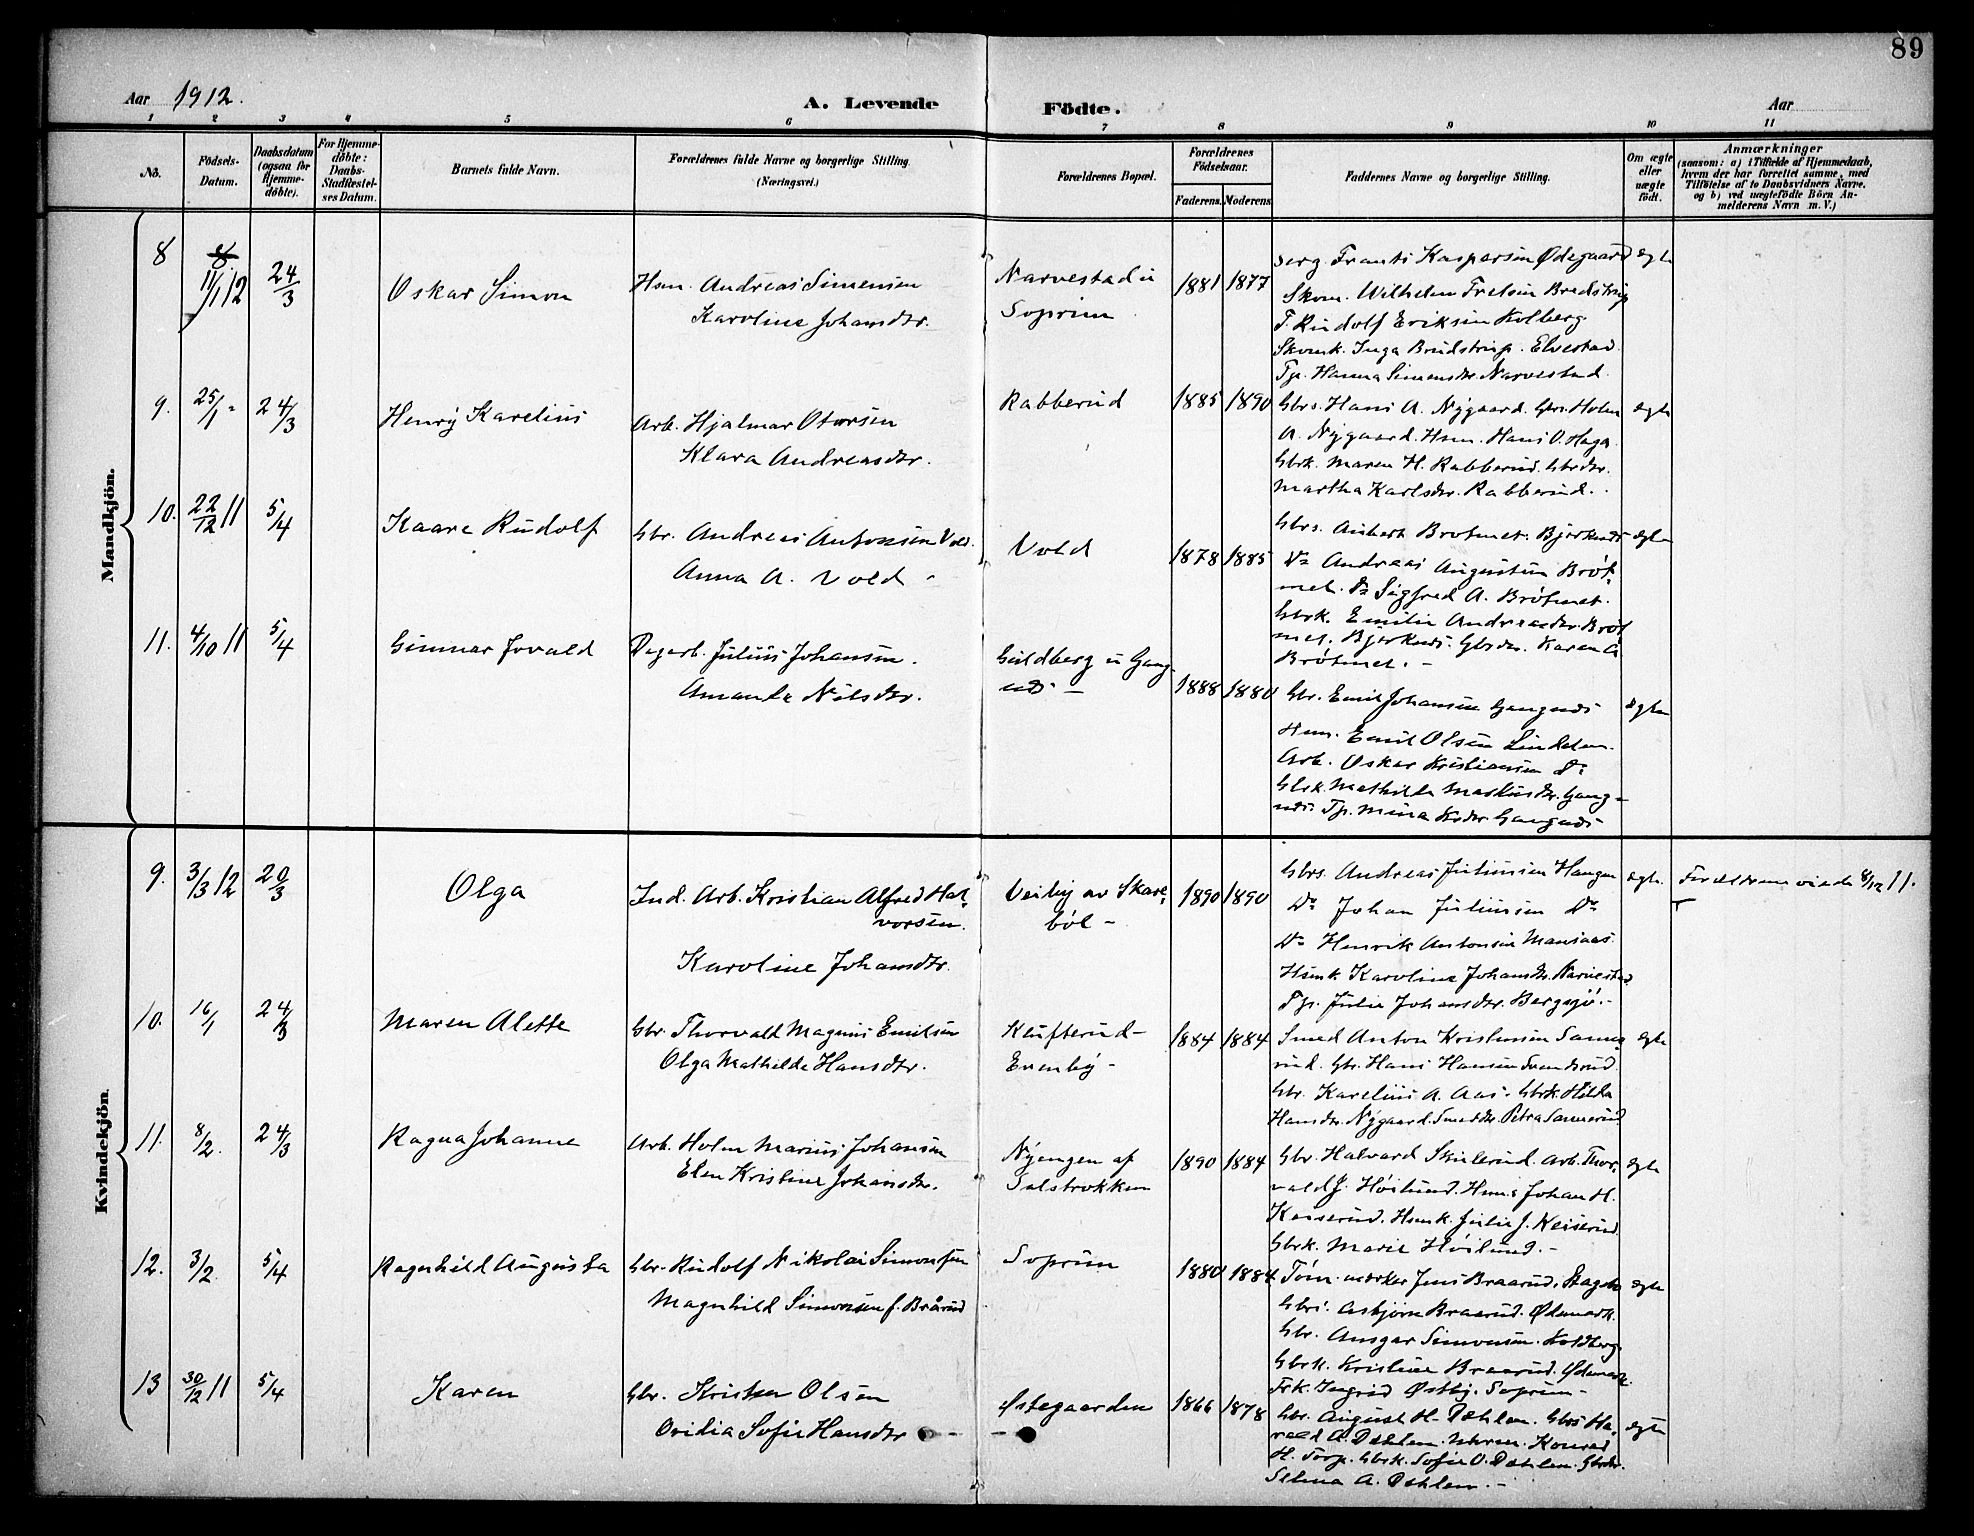 89
Aar 1912.
A. Levende Födte.
Aar
1 2 3 4 5 6 7 8 9 10 11
No.
Födsels-
Datum.
Daabsdatum
(ogsaa for
Hjemme-
döbte).
For Hjemme-
döbte:
Daabs-
Stadfæstel-
ses Datum.
Barnets fulde Navn.
Forældrenes fulde Navne og borgerlige Stilling.
(Næringsvei.)
Forældrenes Bopæl.
Forældrenes
Födselsaar.
Faderens. Moderens
Faddernes Navne og borgerlige Stilling.
Om ægte
eller
uægte
födt.
Anmærkninger
(saasom: a) i Tilfælde af Hjemmedaab,
hvem der har forrettet samme, med
Tilföielse af to Daabsvidners Navne,
og b) ved uægtefödte Börn An-
melderens Navn m. V.)
Mandkjön.
8 11/1 12 24/3 Oskar Simon
Hsm. Andreas Simensen
Karoline Johansdtr.
Narvestad u
Soprim
1881 1877
Serg. Frants Kaspersen Ødegaard
Skom. Wilhelm Fretsen Bredstrup
T. Rudolf Eriksen Kolberg.
Skomk. Inga Brudstrup. Elvestad.
Tp. Hanna Simensdtr. Narvestad.
egte
9. 25/1 - 24/3 Henry Karelius
Arb. Hjalmar Otersen
Klara Andreasdtr.
Rabberud
1885 1890
Gbrs. Hans A. Nygaard. Gbrs. Holm
A. Nygaard. Hsm. Hans O. Haga.
Gbrk. Maren H. Rabberud. Gbrdtr.
Martha Karlsdtr. Rabberud.
egte
10. 22/12 11 5/4 Kaare Rudolf
Gbr. Andreas Antonsen Vold.
Anna A. Vold -
Vold
1878 1885
Gbrs. Anbert Brotmet. Bjerknæs
Do Andreas Augustin Bröt-
met. Do Sigfred A. Brötmet.
Gbrk. Emilie Andreasdtr. Bröt
met. Bjerknæs. Gbrdtr. Karen A
Brötmet. -
egte
11. 4/10 11 5/4 Gunnar Jovald
Dagarb. Julius Johansen.
Amanda Nilsdtr.
Guldberg u Gang-
næs -
1888 1880
Gbr. Emil Johansen Gangnæs
Hsm. Emil Olsen Lindalen.
Arb. Oskar Kristiansen Do
Gbrk. Mathilde Markusdtr. Gang-
næs. Tp. Mina Gangnæs
egte
Kvindekjön.
9. 3/3 12 20/3 Olga
Ind. Arb. Kristian Alfred Hal-
vorsen.
Karoline Johansdtr.
Veiby av Skare-
böl -
1890 1890
Gbrs. Andreas Juliussen Haugen
Do Johan Juliussen Do
Do Henrik Antonsen Mansaas
Hsmk. Karoline Johansdtr. Narvestad
Tp. Julie Johansdtr. Bergsjö. -
egte. Forældrene viede 8/12 11.
10. 16/1 24/3 Maren Alette
Gbr. Thorvald Magnus Emilsen
Olga Mathilde Hansdtr.
Klufterud-
Evenby -
1884 1884
Smed Anton Kristiansen Sanne-
rud. Gbr. Hans Hansen Svendsrud.
Gbr. Karelius A. Aas. Gbrk. Hilda
Hansdtr. Nygaard. Smeddtr. Petra Sannerud.
egte
11. 8/2. 24/3 Ragna Johanne
Arb. Holm Marius Johansen
Elen Kristine Johansdtr.
Nyengen af
Salstrokken
1890 1884
Gbr. Halvard Skulerud. Arb. Thor-
vald J. Höilund. Hsm. Johan H.
Keiserud. Hsmk. Julie J. Keiserud
Gbrk. Marie Höilund. -
egte
12. 3/2. 5/4 Ragnhild Augusta
Gbr. Rudolf Nikolai Simonsen
Magnhild Simonsen f. Brårud
Soprim
1880 1884
Töm. Jens Braarud,
Gbrs. Asbjörn Braarud. Ødemark.
Gbr. Ansgar Simonsen. Koldberg.
Gbrk. Kristine Braarud. Ødemark.
Frk. Ingrid Østby. Soprim -
egte
13 30/12 11 5/4 Karen
Gbr. Kristen Olsen
Ovidia Sofie Hansdtr
Østegaarden
1866 1878
Gbr. August H. Dæhlen. Gbrs Ha-
rald A. Dæhlen. Konrad
H. Torp. Gbrk. Sofie O. Dæhlen. Gbrdtr.
Selma A. Dæhlen. -
egte